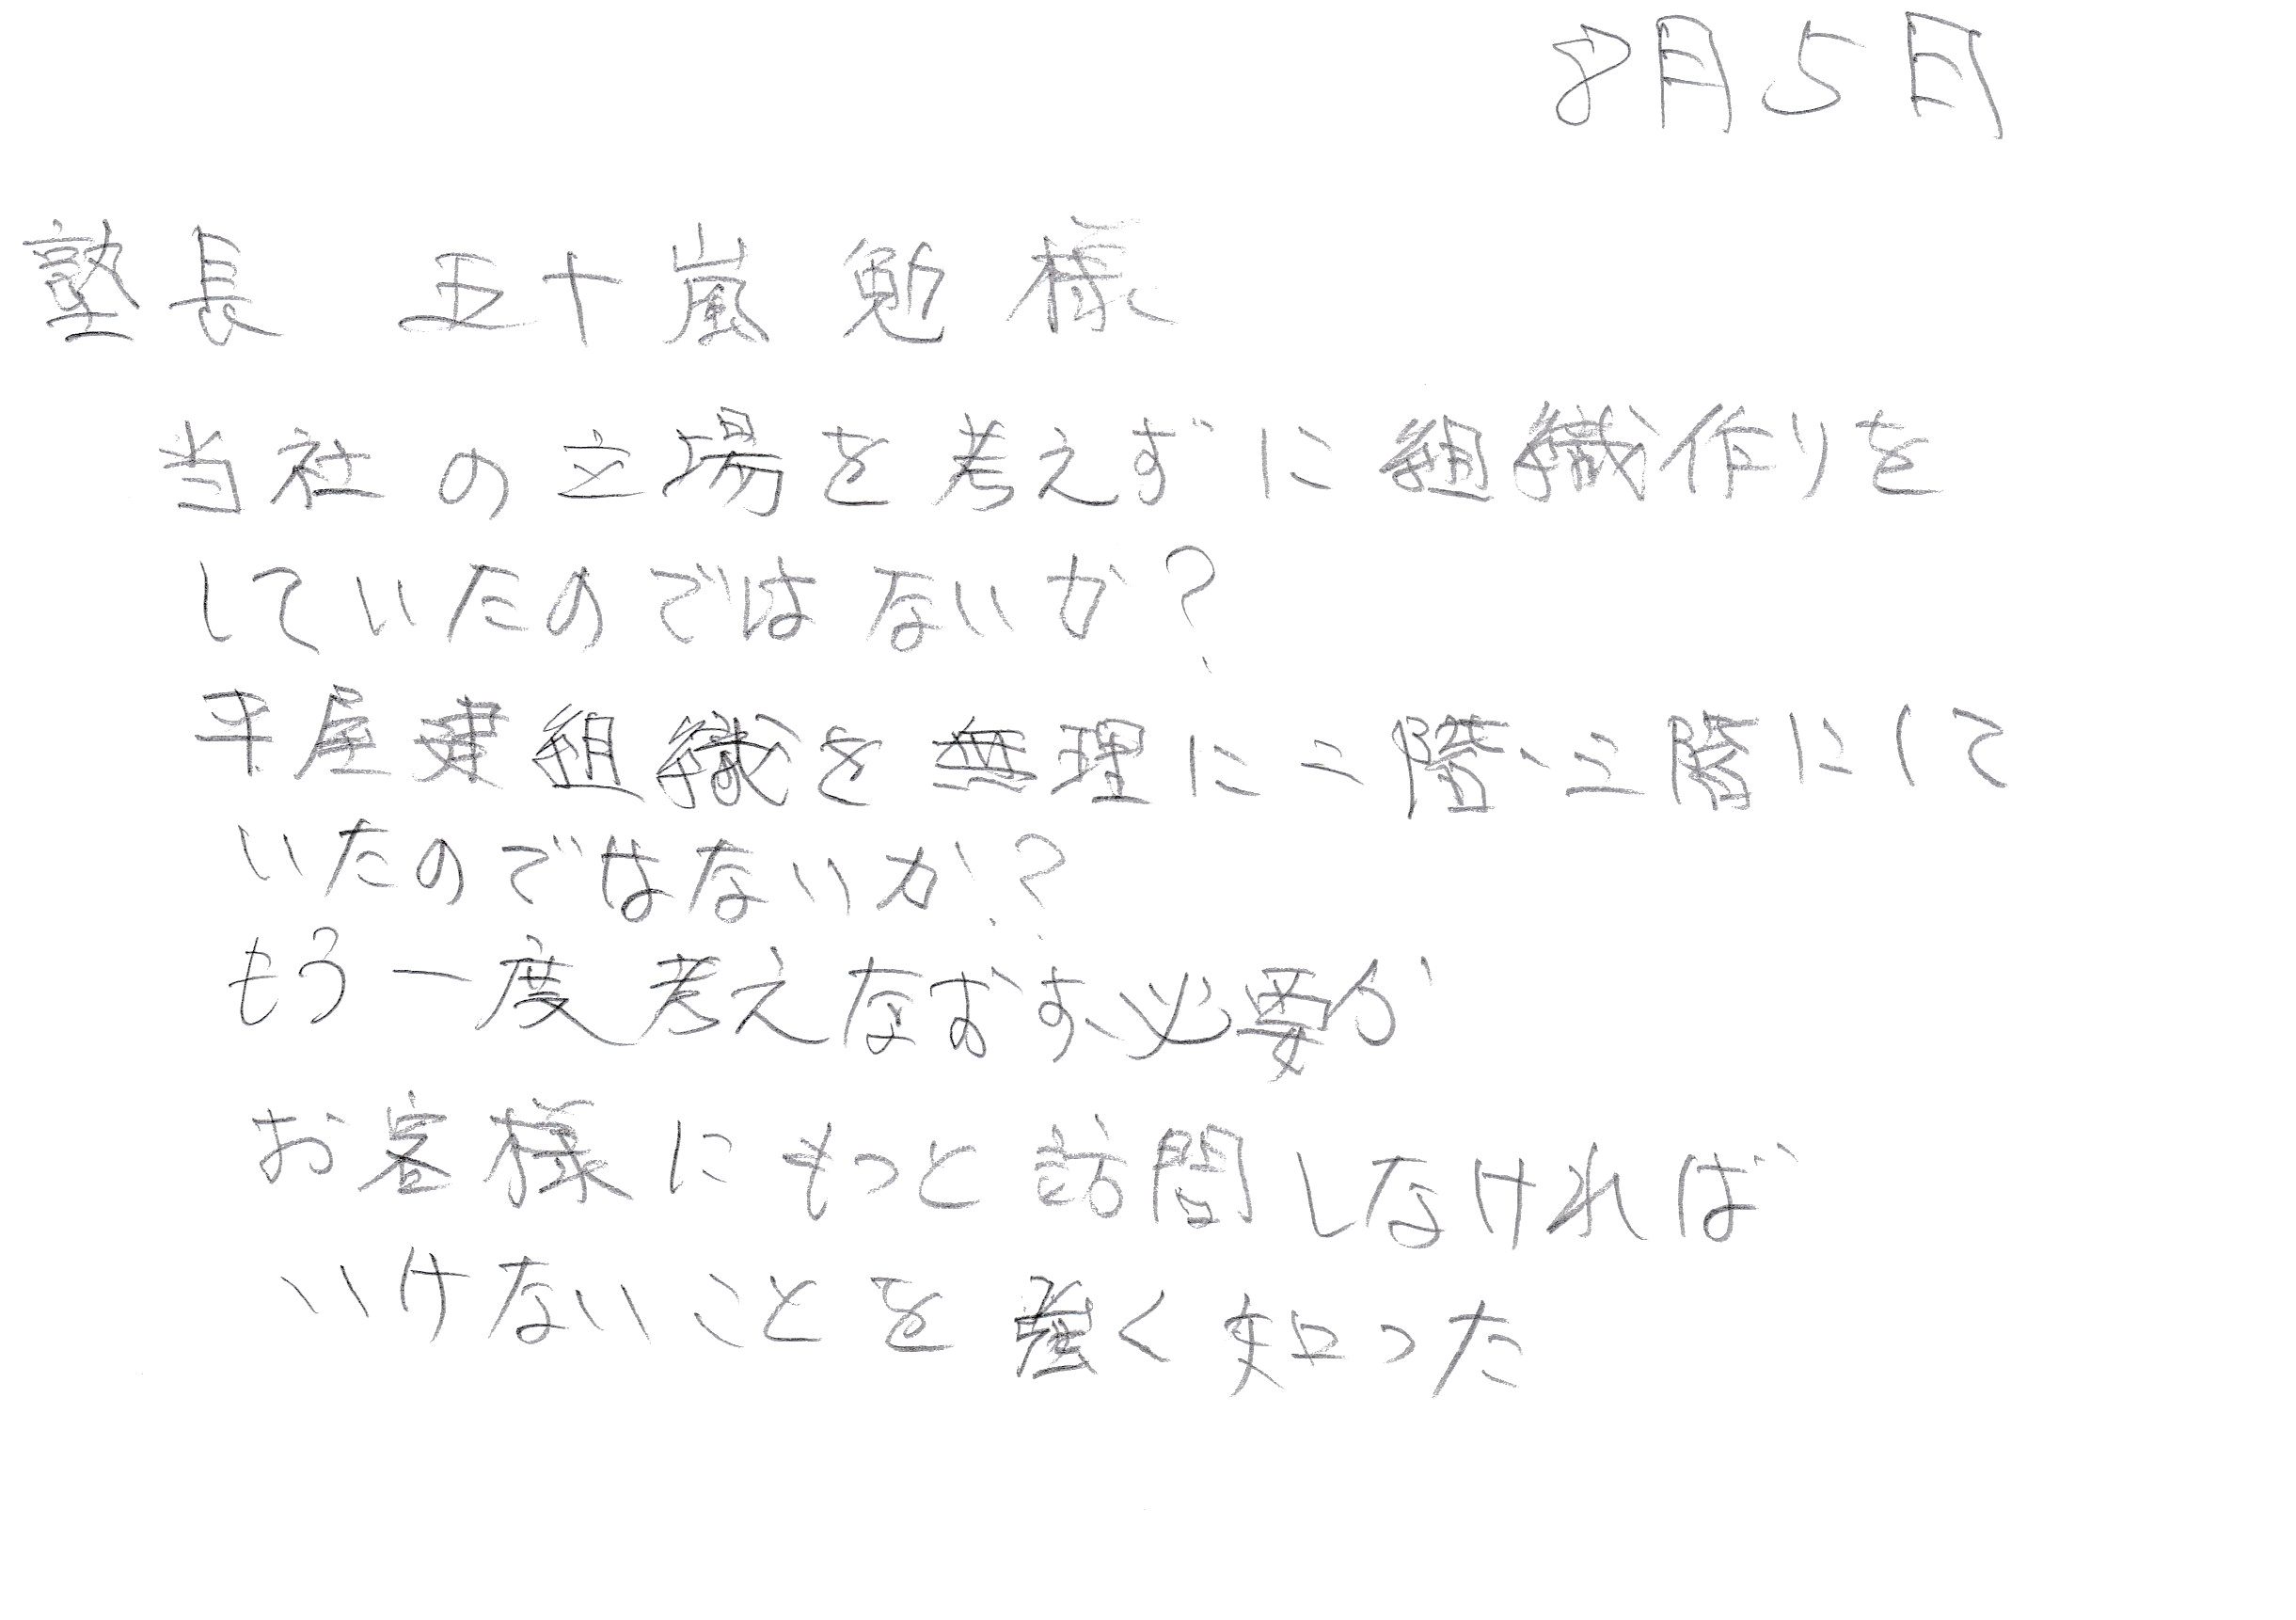 8月5日
塾長 五十嵐勉様
当社の立場を考えずに組織作りを
していたのではないか?
平屋建組織を無理に二階、三階にして
いたのではないか?
もう一度考えなおす必要が
お客様にもっと訪問しなければ
いけないことを強く知った